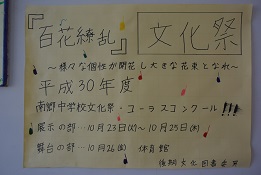 『百花繚乱』 文化祭
〜様々な個性が開花し大きな花束となれ〜
平成30年度
南郷中学校文化祭・コーラスコンクール!!!
展示の部…10月23日(火)〜10月25日(木)
舞台の部…10月26(金) 体育館
後期文化図書委員